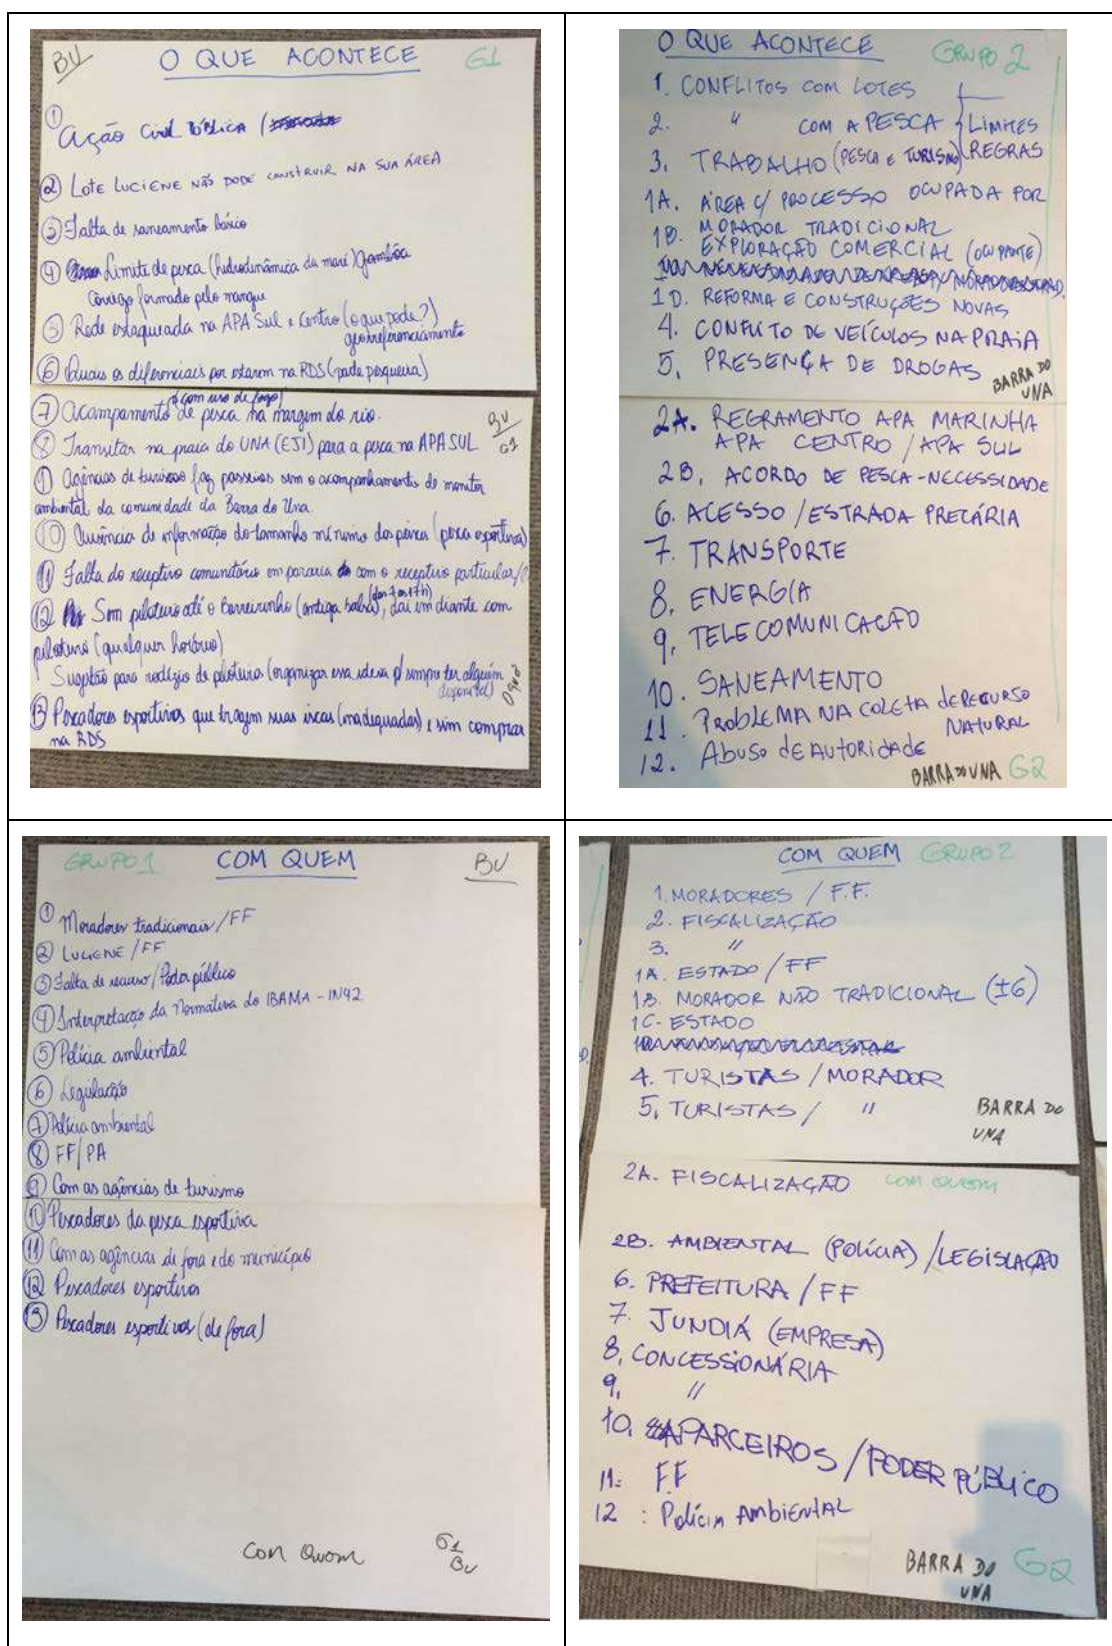 BU O QUE ACONTECE G1
① Ação Civil Pública /
② LOTE LUCIENE NÃO PODE CONSTRUIR NA SUA ÁREA
③ Falta de saneamento básico
④ Limite de pesca (hidrodinâmica da maré) gambôa
Córrego formado pelo mangue
⑤ Rede estaqueada na APA Sul e Centro (o que pode?)
georreferenciamento
⑥ Quais os diferenciais por estarem na RDS (parte pesqueira)
⑦ Acampamento (com uso de fogo) de pesca na margem do rio.
⑧ Transitar na praia do UNA (EJI) para a pesca na APA SUL
BU
G1
⑨ Agências de turismo faz passeios sem o acompanhamento do monitor
ambiental da comunidade da Barra do Una.
⑩ Ausência de informação do tamanho mínimo dos peixes (pesca esportiva)
⑪ Falta do receptivo comunitário em parceria com o receptivo particular/
⑫ Sem piloteiro até o Barreirinho (antiga balsa) (das 7 as 17h), daí em diante com
piloteiro (qualquer horário)
Sugestão para rodízio de piloteiro (organizar essa ideia p/ sempre ter alguém
disponível)
⑬ Pescadores esportivos que tragem suas iscas (inadequadas) e sim comprar
na RDS
O QUE ACONTECE GRUPO 2
1. CONFLITOS COM LOTES
2. " COM A PESCA LIMITES
3. TRABALHO (PESCA E TURISMO) REGRAS
1A. ÁREA C/ PROCESSO OCUPADA POR
MORADOR TRADICIONAL
1B. EXPLORAÇÃO COMERCIAL (OCUPANTE)
1D. REFORMA E CONSTRUÇÕES NOVAS
4. CONFLITO DE VEÍCULOS NA PRAIA
5. PRESENÇA DE DROGAS
BARRA DO
UNA
2A. REGRAMENTO APA MARINHA
APA CENTRO / APA SUL
2B. ACORDO DE PESCA - NECESSIDADE
6. ACESSO / ESTRADA PRECÁRIA
7. TRANSPORTE
8. ENERGIA
9. TELECOMUNICAÇÃO
10. SANEAMENTO
11. PROBLEMA NA COLETA de RECURSO
NATURAL
12. Abuso de AUtoridade
BARRA DO UNA G2
GRUPO 1 COM QUEM BU
① Moradores tradicionais / FF
② LUCIENE / FF
③ Falta de recurso / Poder público
④ Interpretação da Normativa do IBAMA - IN42
⑤ Polícia ambiental
⑥ Legislação
⑦ Polícia ambiental
⑧ FF/PA
⑨ Com as agências de turismo
⑩ Pescadores da pesca esportiva
⑪ Com as agências de fora e do município
⑫ Pescadores esportivos
⑬ Pescadores esportivos (de fora)
COM QUEM G1
BU
COM QUEM GRUPO 2
1. MORADORES / F.F.
2. FISCALIZAÇÃO
3. "
1A. ESTADO / FF
1B. MORADOR NÃO TRADICIONAL (±6)
1C- ESTADO
4. TURISTAS / MORADOR
5. TURISTAS / "
BARRA DO
UNA
2A. FISCALIZAÇÃO COM QUEM
2B. AMBIENTAL (POLÍCIA) / LEGISLAÇÃO
6. PREFEITURA / FF
7. JUNDIÁ (EMPRESA)
8. CONCESSIONÁRIA
9. "
10. PARCEIROS / PODER PÚBLICO
11. F.F
12 : Polícia AmbiENtAL
BARRA DO G2
UNA